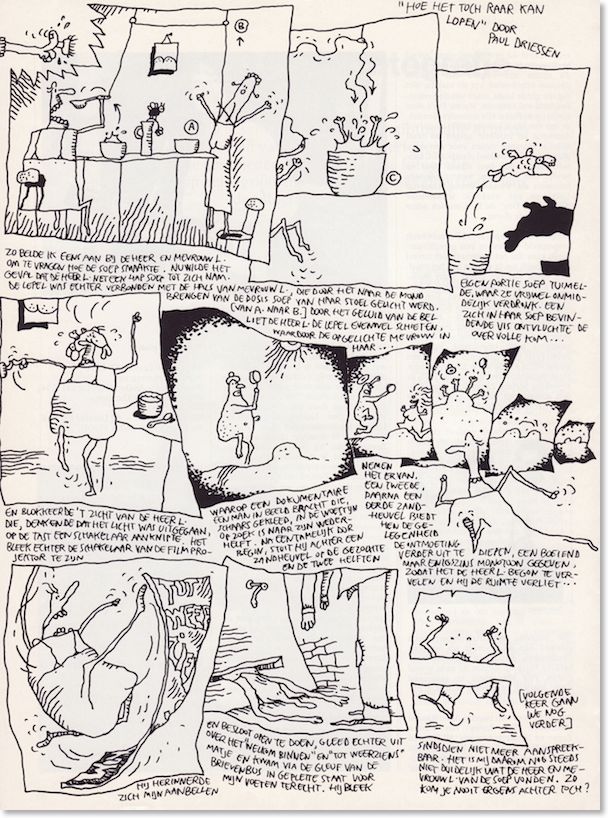 "HOE HET TOCH RAAR KAN
LOPEN" DOOR
PAUL DRIESSEN
B
A
C
ZO BELDE IK EENS AAN BIJ DE HEER EN MEVROUW L.
OM TE VRAGEN HOE DE SOEP SMAAKTE. NU WILDE HET
GEVAL DAT DE HEER L. NET EEN HAP SOEP TOT ZICH NAM.
DE LEPEL WAS ECHTER VERBONDEN MET DE HALS VAN MEVROUW L., DIE DOOR HET NAAR DE MOND
BRENGEN VAN DE DOSIS SOEP VAN HAAR STOEL GELICHT WERD.
[VAN A. NAAR B.] DOOR HET GELUID VAN DE BEL
LIET DE HEER L. DE LEPEL EVENWEL SCHIETEN,
WAARDOOR DE OPGELICHTE MEVROUW IN
HAAR...
EIGEN PORTIE SOEP TUIMEL-
DE, WAAR ZE VRIJWEL ONMID-
DELIJK VERDRONK. EEN
ZICH IN HAAR SOEP BEVIN-
DENDE VIS ONTVLUCHTTE DE
OVERVOLLE KOM...
EN BLOKKEERDE 'T ZICHT VAN DE HEER L.
DIE, DENKENDE DAT HET LICHT WAS UITGEGAAN,
OP DE TAST EEN SCHAKELAAR AANKNIPTE. HET
BLEEK ECHTER DE SCHAKELAAR VAN DE FILMPRO-
JEKTOR TE ZIJN
WAAROP EEN DOKUMENTAIRE
EEN MAN IN BEELD BRACHT DIE,
SCHAARS GEKLEED, IN DE WOESTIJN
OP ZOEK IS NAAR ZIJN WEDER-
HELFT. NA EEN TAMELIJK DOR
BEGIN, STUIT HIJ ACHTER EEN
ZANDHEUVEL OP DE GEZOCHTE
EN DE TWEE HELFTEN
NEMEN
HET ERVAN.
EEN TWEEDE,
DAARNA EEN
DERDE ZAND-
HEUVEL BIEDT
HEN DE GE-
LEGENHEID
DE ONTMOETING
VERDER UIT TE DIEPEN, EEN BOEIEND
MAAR ENIGSZINS MONOTOON GEGEVEN,
ZODAT HET DE HEER L. BEGON TE VER-
VELEN EN HIJ DE RUIMTE VERLIET...
HIJ HERINNERDE
ZICH MIJN AANBELLEN
EN BESLOOT OPEN TE DOEN, GLEED ECHTER UIT
OVER HET "WELKOM BINNEN" EN "TOT WEERZIENS"
MATJE EN KWAM VIA DE GLEUF VAN DE
BRIEVENBUS IN GEPLETTE STAAT VOOR
MIJN VOETEN TERECHT. HIJ BLEEK
[VOLGENDE
KEER GAAN
WE NOG
VERDER]
SINDSDIEN NIET MEER AANSPREEK-
BAAR. HET IS MIJ DAAROM NOG STEEDS
NIET DUIDELIJK WAT DE HEER EN ME-
VROUW L. VAN DE SOEP VONDEN. ZO
KOM JE NOOIT ERGENS ACHTER TOCH?